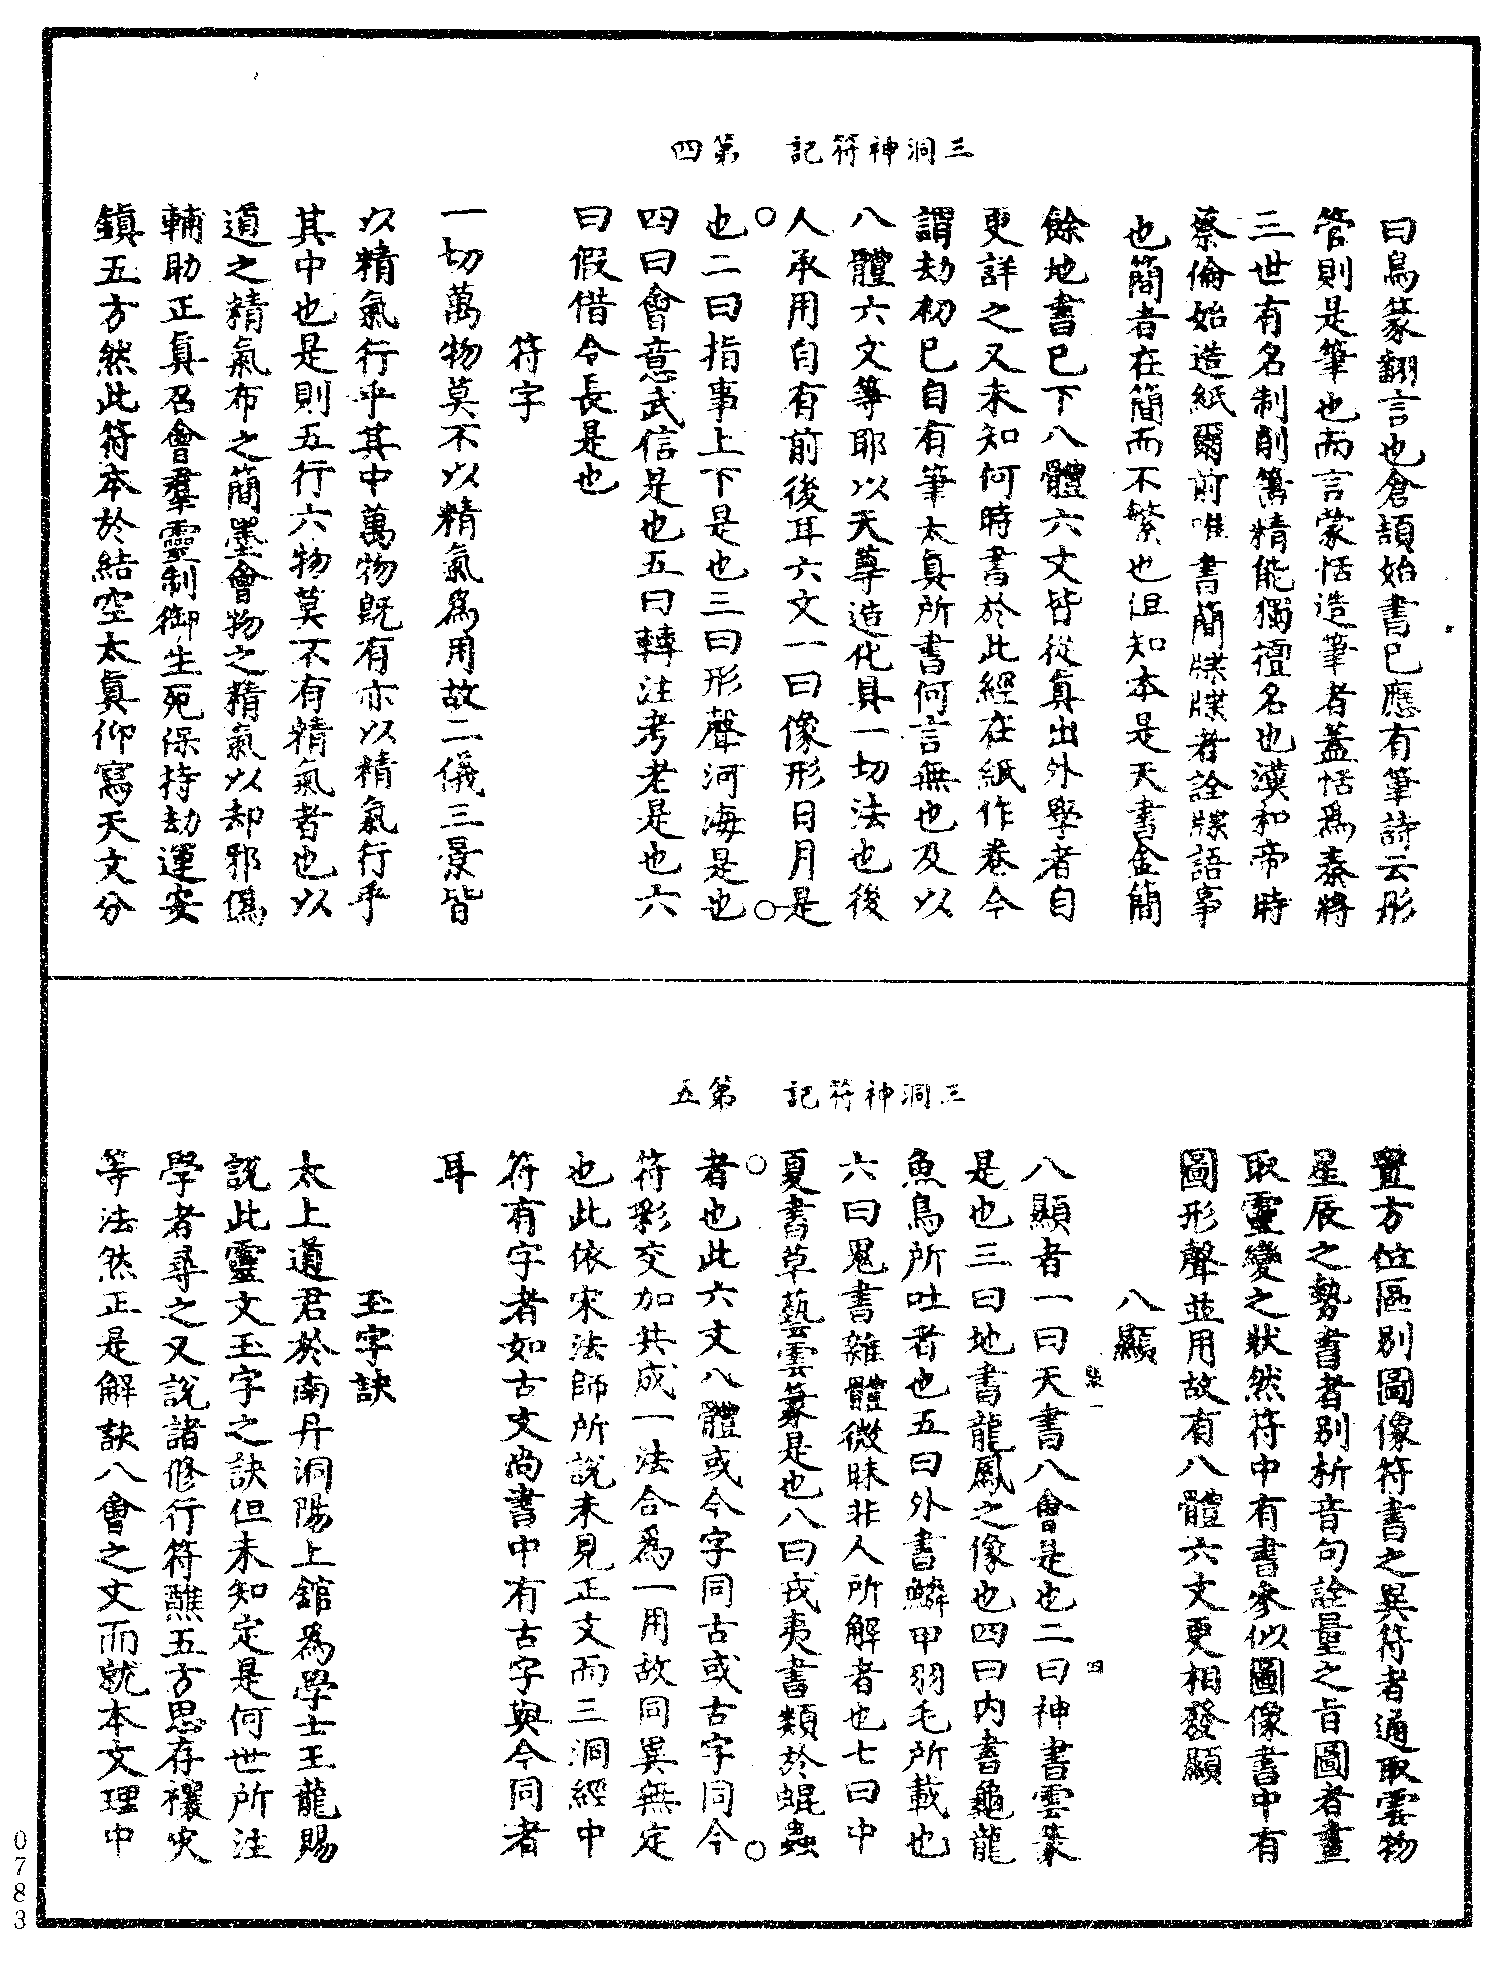 三洞神符記　第四
曰鳥篆翻言也倉頡始書已應有筆詩云彤
管則是筆也而言蒙恬造筆者蓋恬爲秦將
三世有名制削篤精能獨擅名也漢和帝時
蔡倫始造紙爾前唯書簡牒牒者詮牒語事
也簡者在簡而不繁也但知本是天書金簡
餘地書已下八體六文皆從真出外學者自
更詳之又未知何時書於此經在紙作卷今
謂劫初已自有筆太真所書何言無也及以
八體六文等耶以天尊造化具一切法也後
人承用自有前後耳六文一曰像形日月是
也二曰指事上下是也三曰形聲河海是也
四曰會意武信是也五曰轉注考老是也六
曰假借令長是也
符字
一切萬物莫不以精氣爲用故二儀三景皆
以精氣行乎其中萬物既有亦以精氣行乎
其中也是則五行六物莫不有精氣者也以
道之精氣布之簡墨會物之精氣以却邪僞
輔助正真召會羣靈制御生死保持劫運安
鎮五方然此符本於結空太真仰寫天文分
三洞神符記　第五
置方位區別圖像符書之異符者通取雲物
星辰之勢書者別析音句詮量之旨圖者畫
取靈變之狀然符中有書參似圖像書中有
圖形聲並用故有八體六文更相發顯
八顯
八顯者一曰天書八會是也二曰神書雲篆
是也三曰地書龍鳳之像也四曰內書龜龍
魚鳥所吐者也五曰外書鱗甲羽毛所載也
六曰鬼書雜體微昧非人所解者也七曰中
夏書草藝雲篆是也八曰戎夷書類於蜫蟲
者也此六文八體或今字同古或古字同今
符彩交加共成一法合爲一用故同異無定
也此依宋法師所說未見正文而三洞經中
符有字者如古文尚書中有古字與今同者
耳
玉字訣
太上道君於南丹洞陽上館爲學士王龍賜
說此靈文玉字之訣但未知定是何世所注
學者尋之又說諸修行符醮五方思存禳灾
等法然正是解訣八會之文而就本文理中
一
四
0783